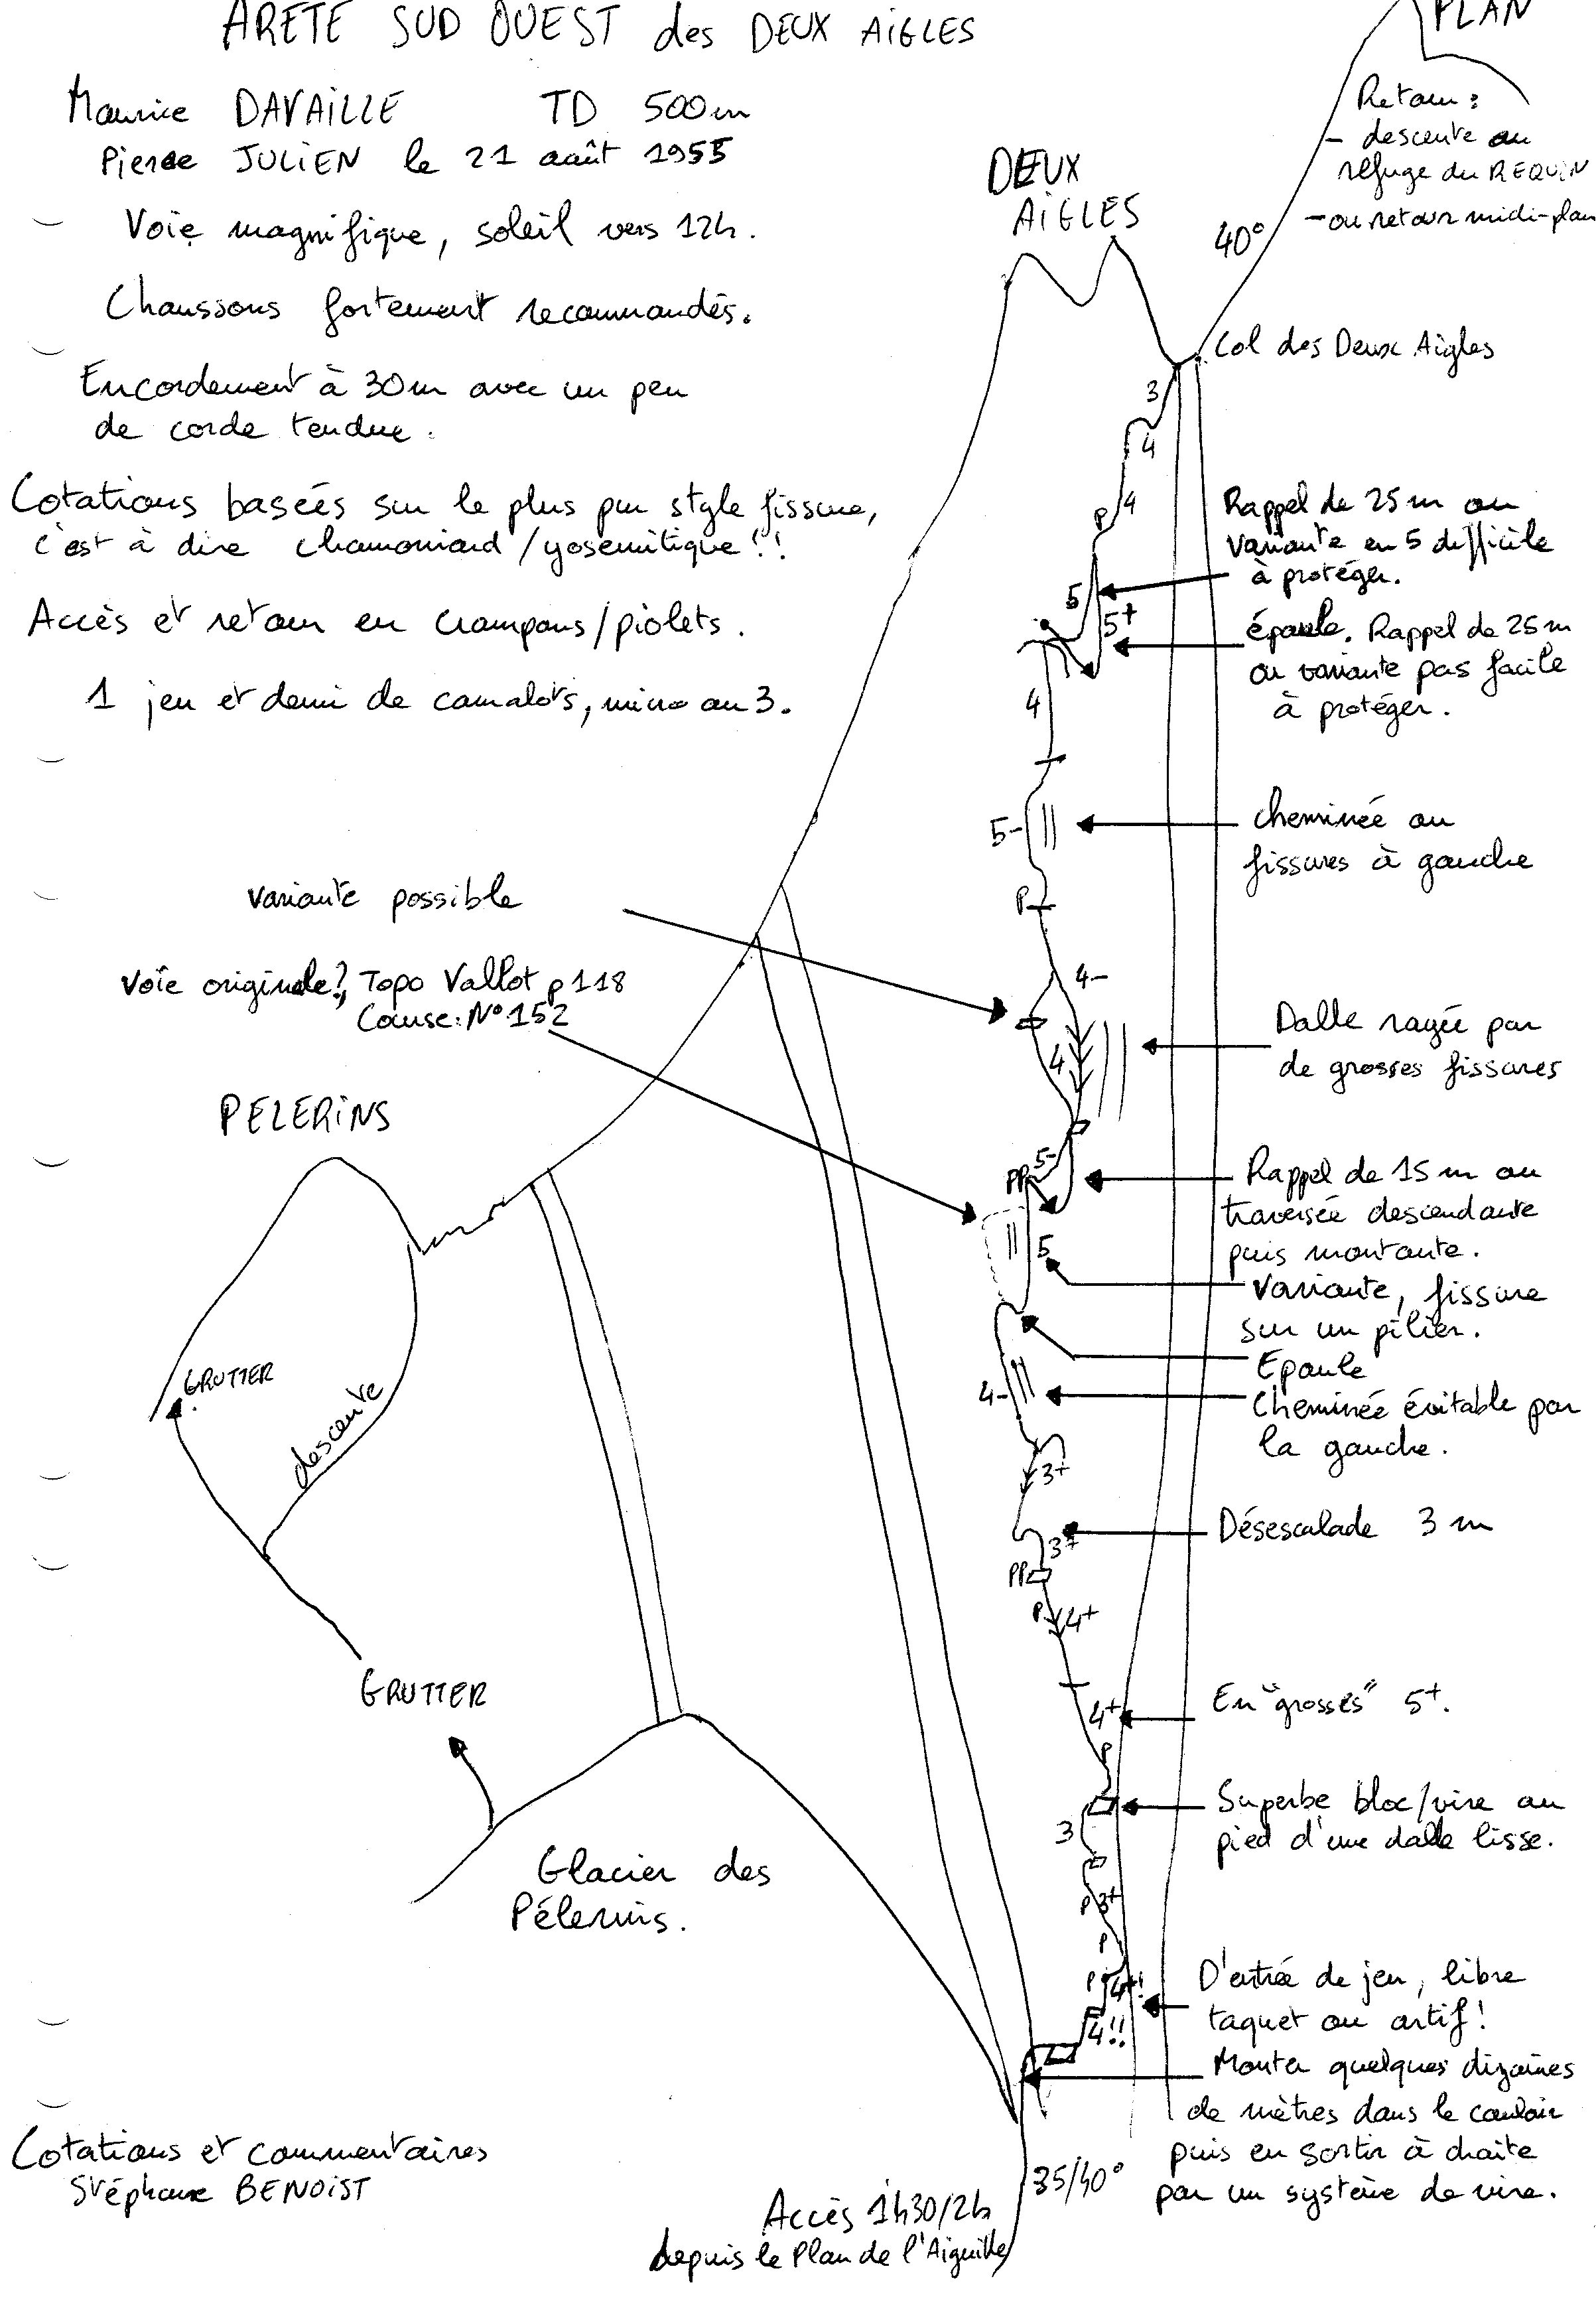 ARETE SUD OUEST des DEUX AiGLES
Maurice DAVAILLE TD 500m
Pierre JULIEN le 21 août 1955
Voie magnifique, soleil vers 12h.
Chaussons fortement recommandés.
Encordement à 30m avec un peu
de corde tendue.
Cotations basées sur le plus pur style fissure,
c'est à dire chamoniard/yosemitique!!
Accès et retour en crampons/piolets.
1 jeu et demi de camalots, micro au 3.
variante possible
Voie originale?, Topo Vallot p118
Course: N°152
PELERiNS
GRUTTER
descente
GRUTTER
Glacier des
Pélerins.
Cotations et commentaires
Stéphane BENOiST
PLAN
Retour:
- descente au
refuge du REQUiN
- ou retour midi-plan
40°
DEUX
AiGLES
Col des Deux Aigles
3
4
4
P
Rappel de 25m ou
variante en 5 difficile
à protéger.
5
5+
épaule. Rappel de 25m
ou variante pas facile
à protéger.
4
5-
cheminée ou
fissures à gauche
P
4-
4
Dalle rayée par
de grosses fissures
5-
PP
Rappel de 15m ou
traversée descendante
puis montante.
5
Variante, fissure
sur un pilier.
Epaule
4-
Cheminée évitable par
la gauche.
3+
Désescalade 3m
3+
PP
P
4+
4+
En "grosses" 5+.
P
Superbe bloc/vire au
pied d'une dalle lisse.
3
P
3+
P
P
4+!
D'entrée de jeu, libre
taquet ou artif!
4!!
Monter quelques dizaines
de mètres dans le couloir
puis en sortir à droite
par un système de vire.
35/40°
Accès 1h30/2h
depuis le Plan de l'Aiguille